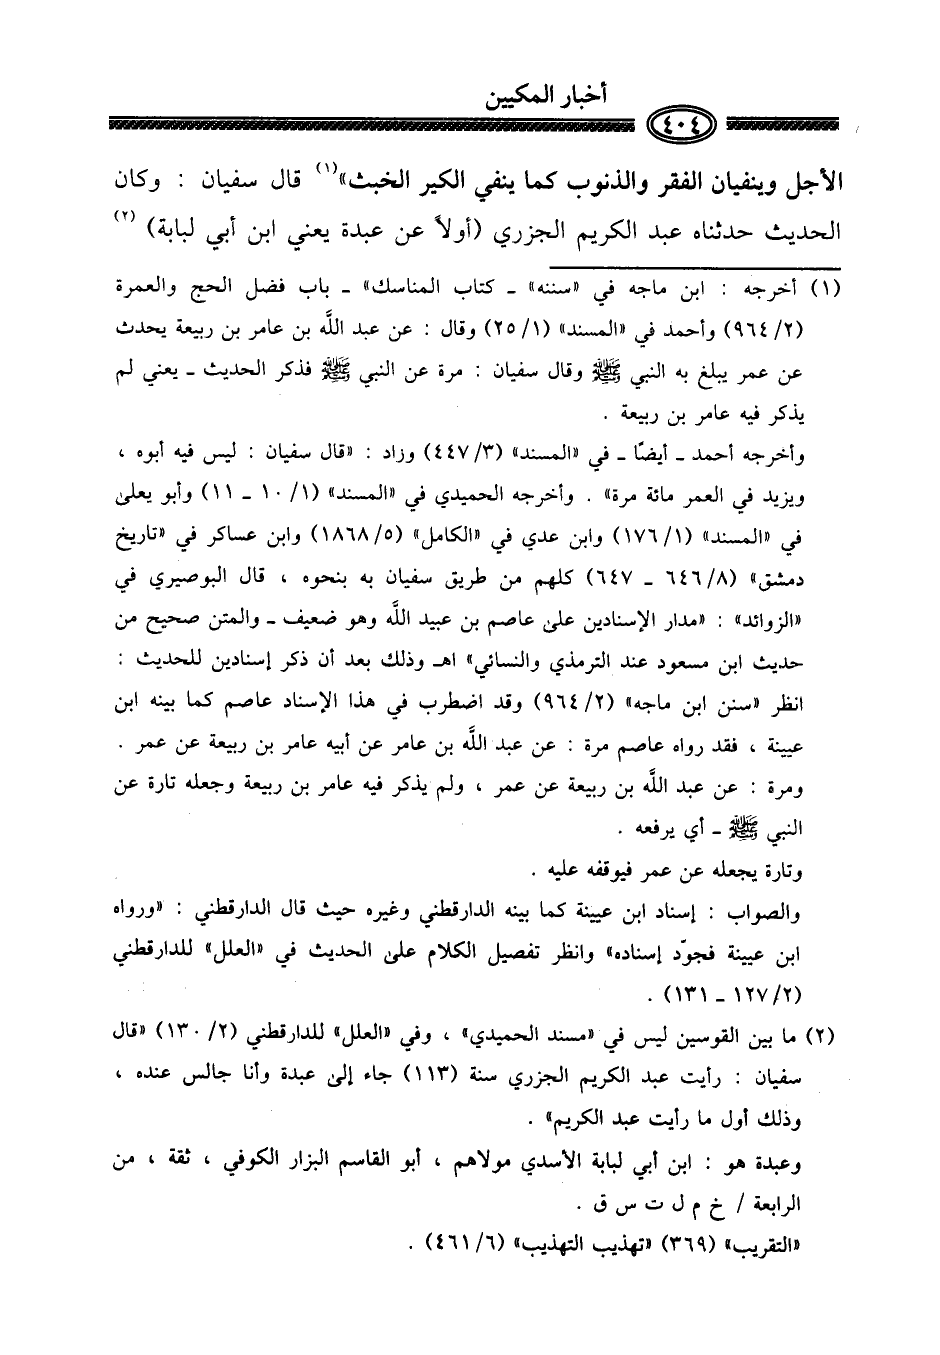 أخبار المكيين
٤٠٤
الأجل وينفيان الفقر والذنوب كما ينفي الكير الخبث»(١) قال سفيان : وكان
الحديث حدثناه عبد الكريم الجزري (أولاً عن عبدة يعني ابن أبي لبابة) (٢)
(١) أخرجه : ابن ماجه في «سننه» ـ كتاب المناسك» ـ باب فضل الحج والعمرة
(٢/ ٩٦٤) وأحمد في «المسند» (١/ ٢٥) وقال : عن عبد اللَّه بن عامر بن ربيعة يحدث
عن عمر يبلغ به النبي ﷺ وقال سفيان : مرة عن النبي ﷺ فذكر الحديث ـ يعني لم
يذكر فيه عامر بن ربيعة .
وأخرجه أحمد ـ أيضًا ـ في «المسند» (٣/ ٤٤٧) وزاد : «قال سفيان : ليس فيه أبوه ،
ويزيد في العمر مائة مرة» . وأخرجه الحميدي في «المسند» (١/ ١٠ ـ ١١) وأبو يعلى
في «المسند» (١/ ١٧٦) وابن عدي في «الكامل» (٥/ ١٨٦٨) وابن عساكر في «تاريخ
دمشق» (٨/ ٦٤٦ ـ ٦٤٧) كلهم من طريق سفيان به بنحوه ، قال البوصيري في
«الزوائد» : «مدار الإسنادين على عاصم بن عبيد اللَّه وهو ضعيف ـ والمتن صحيح من
حديث ابن مسعود عند الترمذي والنسائي» اهـ وذلك بعد أن ذكر إسنادين للحديث :
انظر «سنن ابن ماجه» (٢/ ٩٦٤) وقد اضطرب في هذا الإسناد عاصم كما بينه ابن
عيينة ، فقد رواه عاصم مرة : عن عبد اللَّه بن عامر عن أبيه عامر بن ربيعة عن عمر .
ومرة : عن عبد اللَّه بن ربيعة عن عمر ، ولم يذكر فيه عامر بن ربيعة وجعله تارة عن
النبي ﷺ ـ أي يرفعه .
وتارة يجعله عن عمر فيوقفه عليه .
والصواب : إسناد ابن عيينة كما بينه الدارقطني وغيره حيث قال الدارقطني : «ورواه
ابن عيينة فجوّد إسناده» وانظر تفصيل الكلام على الحديث في «العلل» للدارقطني
(٢/ ١٢٧ ـ ١٣١) .
(٢) ما بين القوسين ليس في «مسند الحميدي» ، وفي «العلل» للدارقطني (٢/ ١٣٠) «قال
سفيان : رأيت عبد الكريم الجزري سنة (١١٣) جاء إلى عبدة وأنا جالس عنده ،
وذلك أول ما رأيت عبد الكريم» .
وعبدة هو : ابن أبي لبابة الأسدي مولاهم ، أبو القاسم البزار الكوفي ، ثقة ، من
الرابعة / خ م ل ت س ق .
«التقريب» (٣٦٩) «تهذيب التهذيب» (٦/ ٤٦١) .